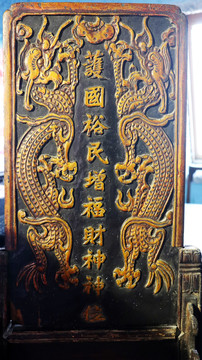 護國裕民增福財神神